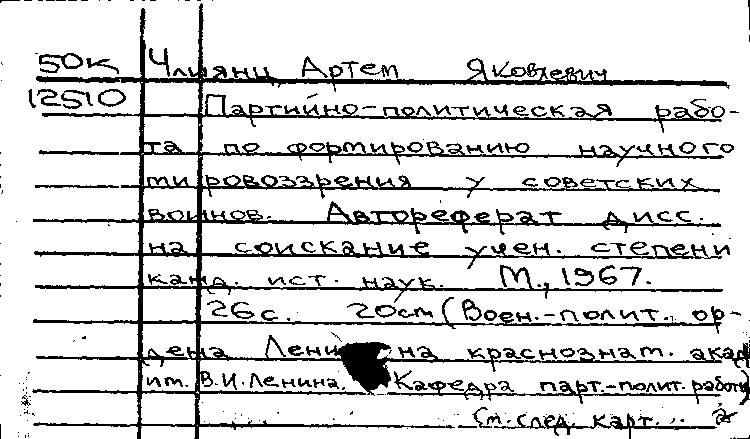 50к Члиянц Артем Яковлевич
12510 Партийно-политическая рабо-
та по формированию научного
мировоззрения у советских
воинов. Автореферат дисс.
на соискание учен. степени
канд. ист. наук. М., 1967.
26с. 20см (Воен.-полит. ор-
дена Ленина краснознам. акад
им. В.И.Ленина. Кафедра парт.-полит. работы)
См. след. карт.